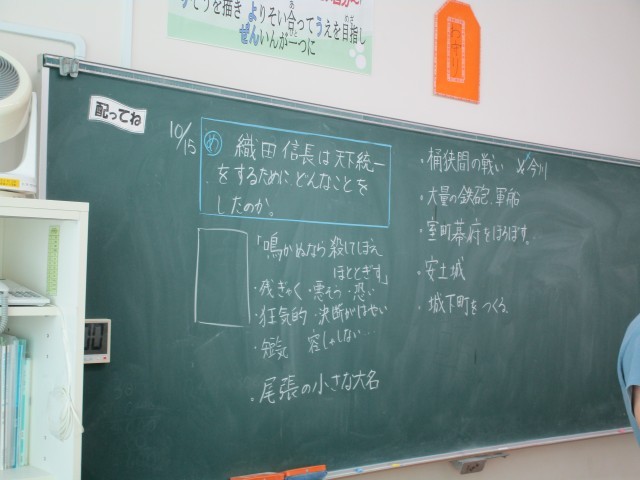 を描き よりそい合ってうえを目指し
ぜんいんが一つに
配ってね
10/15
め 織田信長は天下統一
をするためにどんなことを
したのか。
「鳴かぬなら殺してしまえ
ほととぎす」
・残ぎゃく・悪そう・恐い
・狂気的・決断がはやい
・短気 容しゃしない…
・尾張の小さな大名
・桶狭間の戦い ×今川
・大量の鉄砲、軍船
・室町幕府をほろぼす。
・安土城
・城下町をつくる。